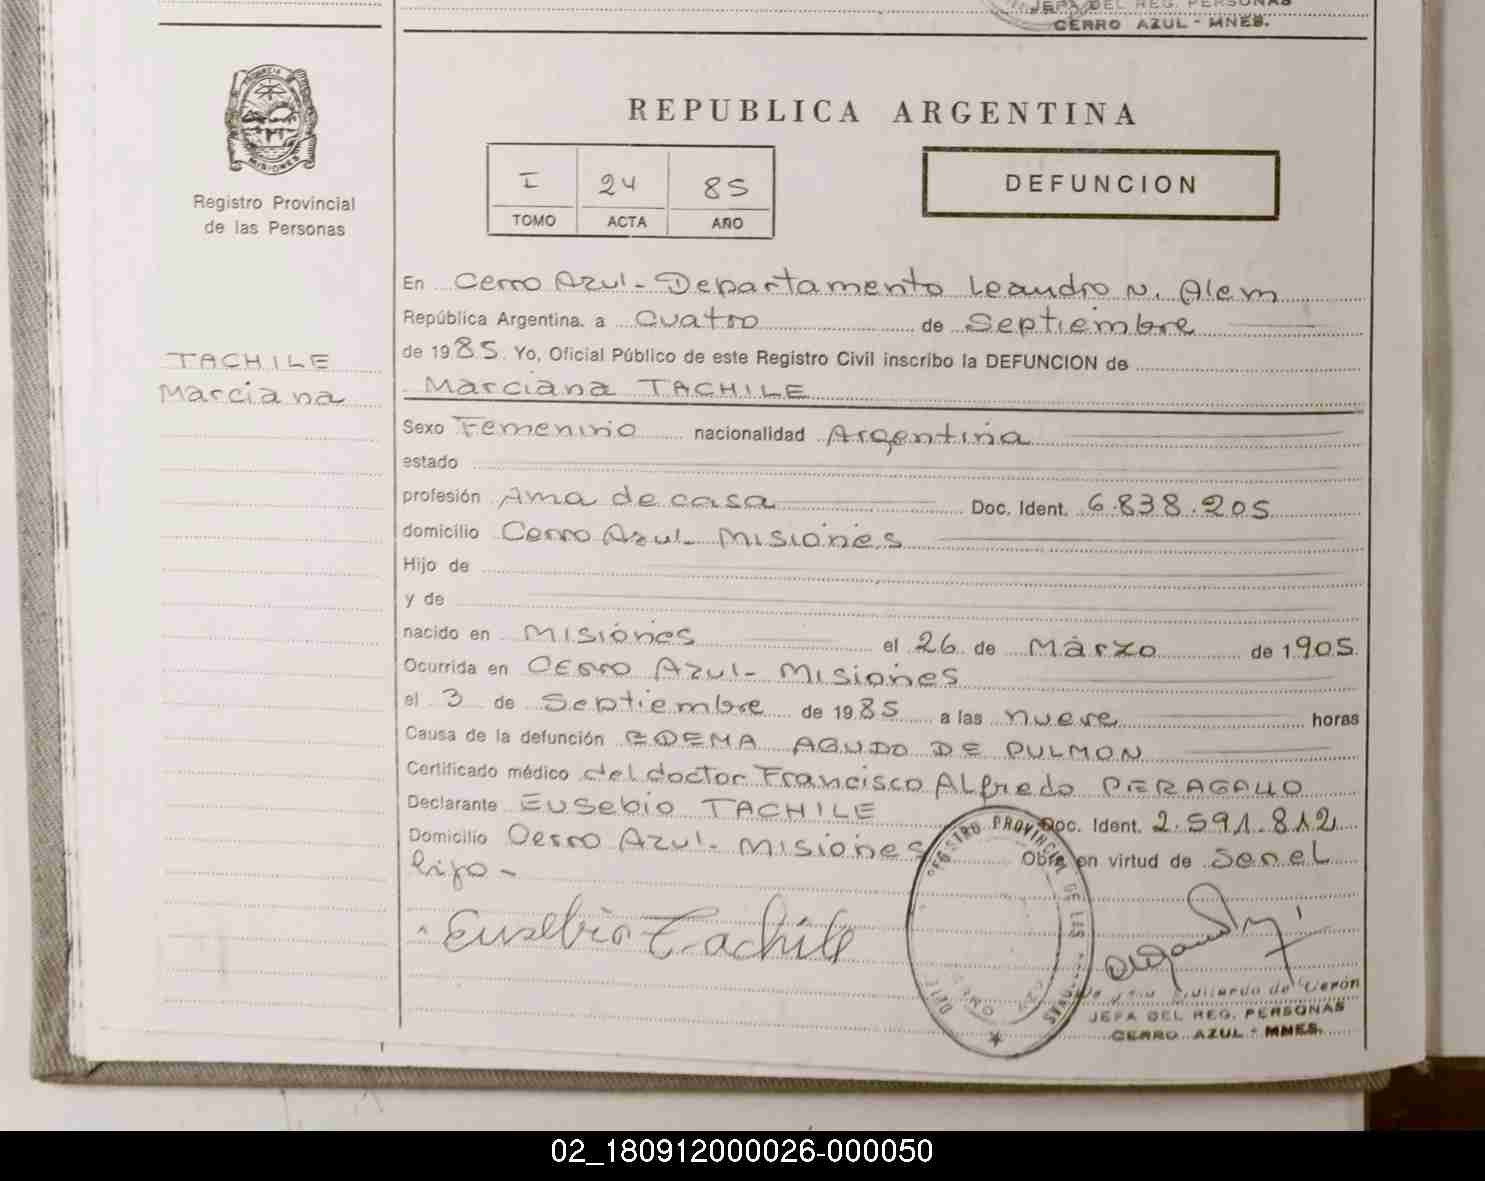 JEFA DEL REG. PERSONAS
CERRO AZUL - MNES.
PROVINCIA DE
MISIONES
Registro Provincial
de las Personas
REPUBLICA ARGENTINA
I 24 85
TOMO ACTA AÑO
DEFUNCION
TACHILE
Marciana
En Cerro Azul - Departamento Leandro N. Alem
República Argentina. a Cuatro de Septiembre
de 1985. Yo, Oficial Público de este Registro Civil inscribo la DEFUNCION de
Marciana TACHILE
Sexo Femenino nacionalidad Argentina
estado
profesión Ama de casa Doc. Ident. 6.838.205
domicilio Cerro Azul - Misiones
Hijo de
y de
nacido en Misiones el 26 de Marzo de 1905.
Ocurrida en Cerro Azul - Misiones
el 3 de Septiembre de 1985 a las nueve horas
Causa de la defunción EDEMA AGUDO DE PULMON
Certificado médico del doctor Francisco Alfredo PERAGALLO
Declarante Eusebio TACHILE Doc. Ident. 2.591.812
Domicilio Cerro Azul - Misiones Obra en virtud de Ser el
hijo -
Eusebio Tachile
REGISTRO PROVINCIAL DE LAS
de Verón
JEFA DEL REG. PERSONAS
CERRO AZUL - MNES.
02_180912000026-000050